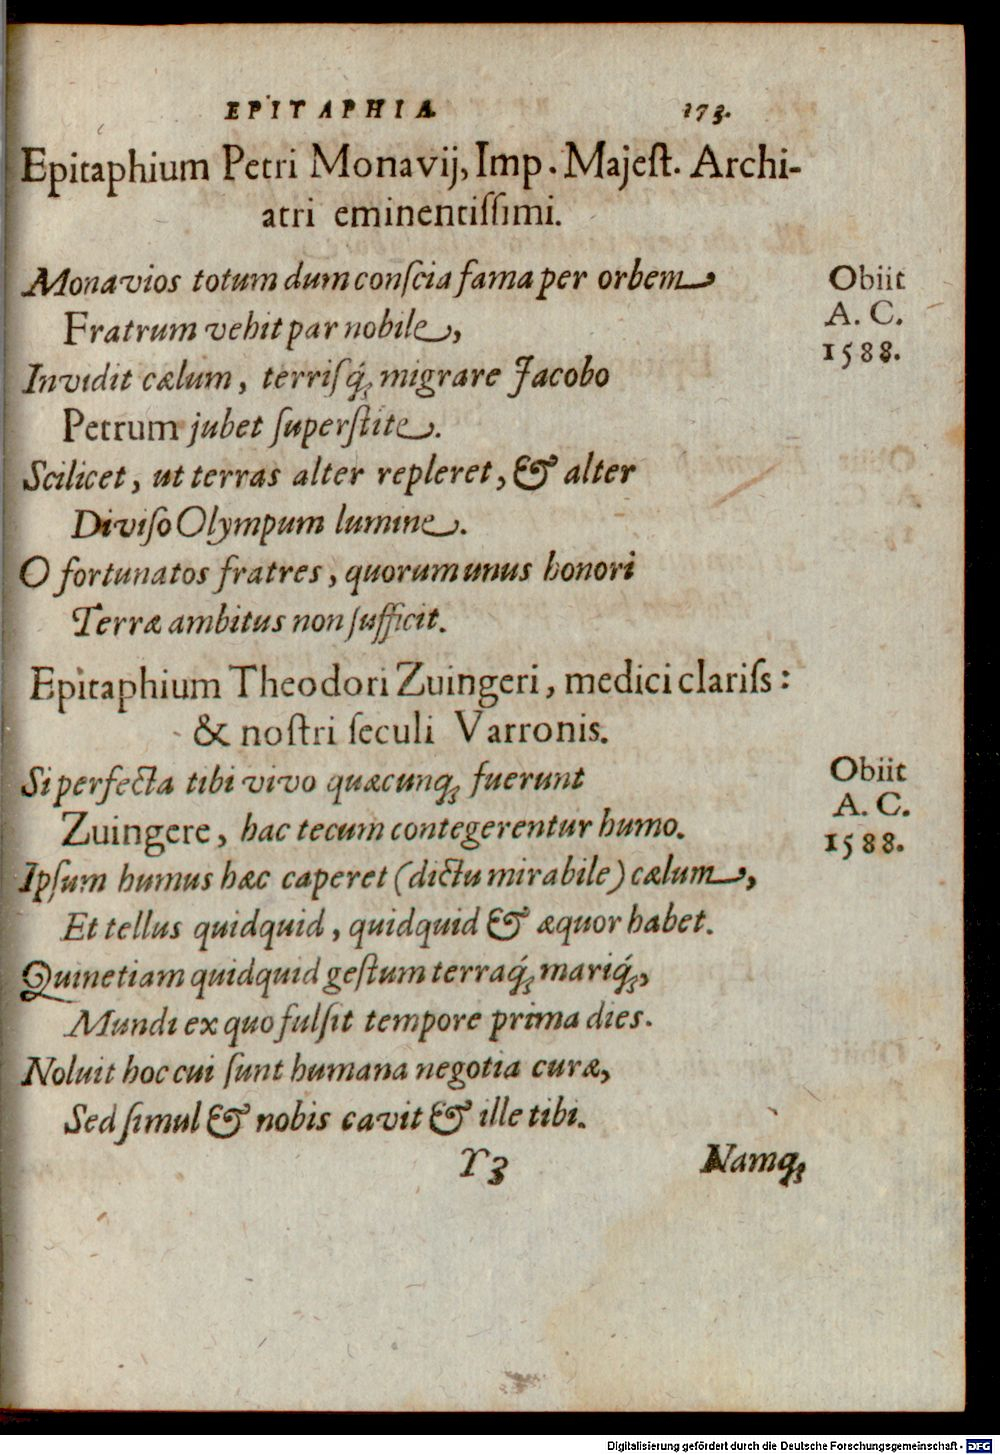 EPITAPHIA 173.
Epitaphium Petri Monavij, Imp. Majeſt. Archi-
atri eminentiſſimi.
Monavios totum dum conſcia fama per orbem
Obiit
Fratrum vehit par nobile,
A. C.
Invidit cælum, terriſq́; migrare Jacobo
1588.
Petrum jubet ſuperſtite.
Scilicet, ut terras alter repleret, & alter
Diviſo Olympum lumine.
O fortunatos fratres, quorum unus honori
Terræ ambitus non ſufficit.
Epitaphium Theodori Zuingeri, medici clariſs:
& noſtri ſeculi Varronis.
Si perfecta tibi vivo quæcunq; fuerunt
Obiit
Zuingere, hac tecum contegerentur humo.
A. C.
1588.
Ipſum humus hæc caperet (dictu mirabile) cælum,
Et tellus quidquid, quidquid & æquor habet.
Quinetiam quidquid geſtum terraq́; mariq́;,
Mundi ex quo fulſit tempore prima dies.
Noluit hoc cui ſunt humana negotia curæ,
Sed ſimul & nobis cavit & ille tibi.
Y3 Namq;
Digitalisierung gefördert durch die Deutsche Forschungsgemeinschaft - DFG